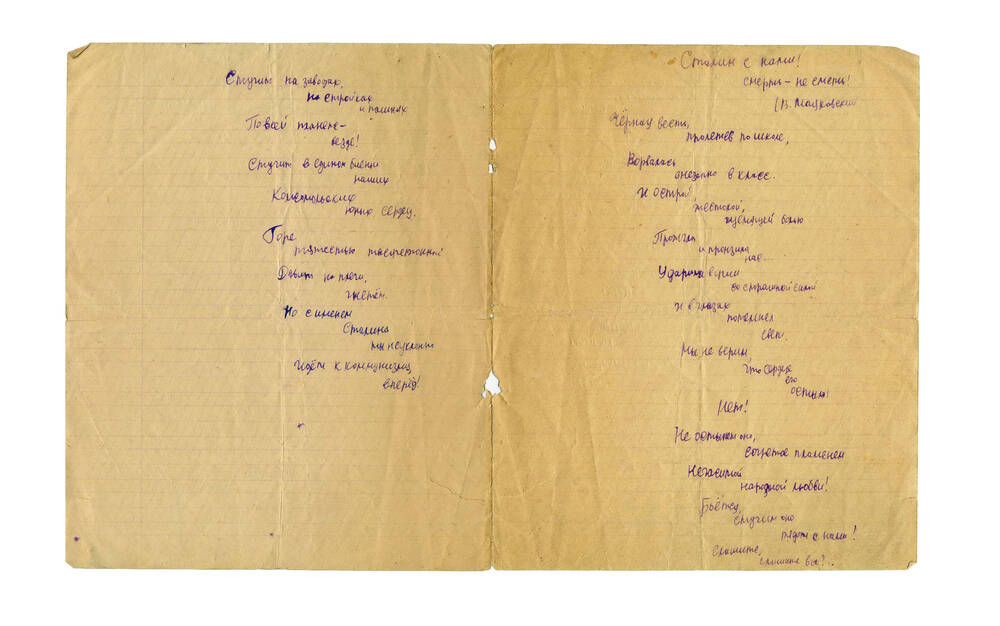 Сталин с нами!
смерть - не сметь!
(В. Маяковский
Чёрная весть,
пролетев по школе,
Ворвалась
внезапно в класс.
И острой,
жестокой,
щемящей болью
Прожгла
и пронзила
нас...
Ударила горем
со страшной силой
И в глазах
потемнел
свет.
Мы не верим,
что сердце
его
остыло!
Нет!
Не остынет оно,
согретое пламенем
Негасимой
народной любви!
Бьётся,
стучит оно
рядом с нами!
Слышите,
слышите вы?..
Стучит на заводах,
на стройках
и пашнях
По всей планете -
везде!
Стучит в едином биеньи
наших
Комсомольских
юных сердец.
Горе
тяжестью
Давит на плечи,
гнетёт.
Но с именем
Сталина
мы неуклонно
Идём к коммунизму
вперёд!